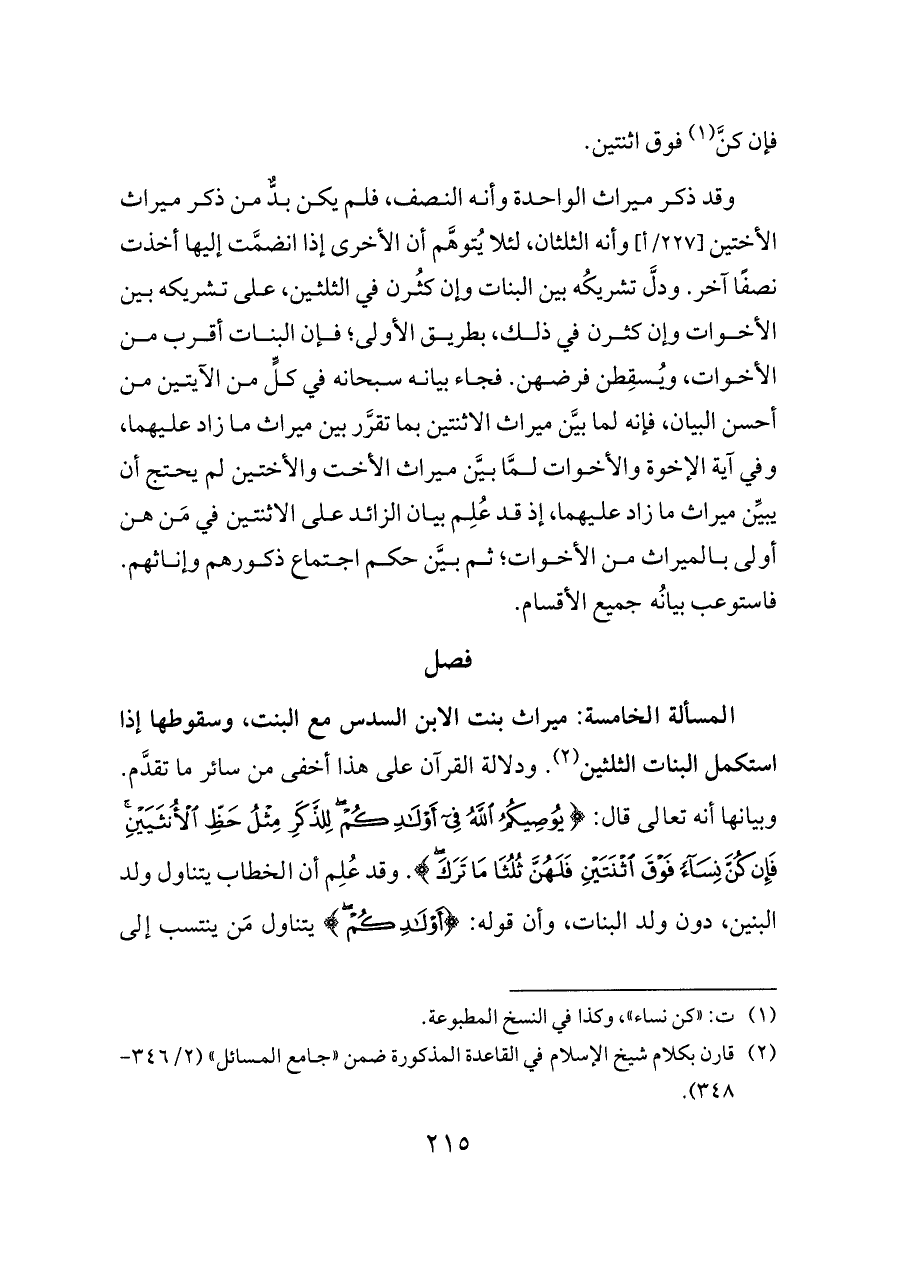 فإن كنَّ(١) فوق اثنتين.
وقد ذكر ميراث الواحدة وأنه النصف، فلم يكن بدٌّ من ذكر ميراث
الأختين [٢٢٧/أ] وأنه الثلثان، لئلا يُتوهَّم أن الأخرى إذا انضمَّت إليها أخذت
نصفًا آخر. ودلَّ تشريكُه بين البنات وإن كثُرن في الثلثين، على تشريكه بين
الأخوات وإن كثرن في ذلك، بطريق الأولى؛ فإن البنات أقرب من
الأخوات، ويُسقِطن فرضهن. فجاء بيانه سبحانه في كلٍّ من الآيتين من
أحسن البيان، فإنه لما بيَّن ميراث الاثنتين بما تقرَّر بين ميراث ما زاد عليهما،
وفي آية الإخوة والأخوات لـمَّا بيَّن ميراث الأخت والأختين لم يحتج أن
يبيِّن ميراث ما زاد عليهما، إذ قد عُلِم بيان الزائد على الاثنتين في مَن هن
أولى بالميراث من الأخوات؛ ثم بيَّن حكم اجتماع ذكورهم وإناثهم.
فاستوعب بيانُه جميع الأقسام.
فصل
المسألة الخامسة: ميراث بنت الابن السدس مع البنت، وسقوطها إذا
استكمل البنات الثلثين(٢). ودلالة القرآن على هذا أخفى من سائر ما تقدَّم.
وبيانها أنه تعالى قال: ﴿يُوصِيكُمُ ٱللَّهُ فِيٓ أَوۡلَٰدِكُمۡۖ لِلذَّكَرِ مِثۡلُ حَظِّ ٱلۡأُنثَيَيۡنِۚ
فَإِن كُنَّ نِسَآءٗ فَوۡقَ ٱثۡنَتَيۡنِ فَلَهُنَّ ثُلُثَا مَا تَرَكَۖ﴾. وقد عُلِم أن الخطاب يتناول ولد
البنين، دون ولد البنات، وأن قوله: ﴿أَوۡلَٰدِكُمۡۖ﴾ يتناول مَن ينتسب إلى
(١) ت: «كن نساء»، وكذا في النسخ المطبوعة.
(٢) قارن بكلام شيخ الإسلام في القاعدة المذكورة ضمن «جامع المسائل» (٢/ ٣٤٦-
٣٤٨).
٢١٥